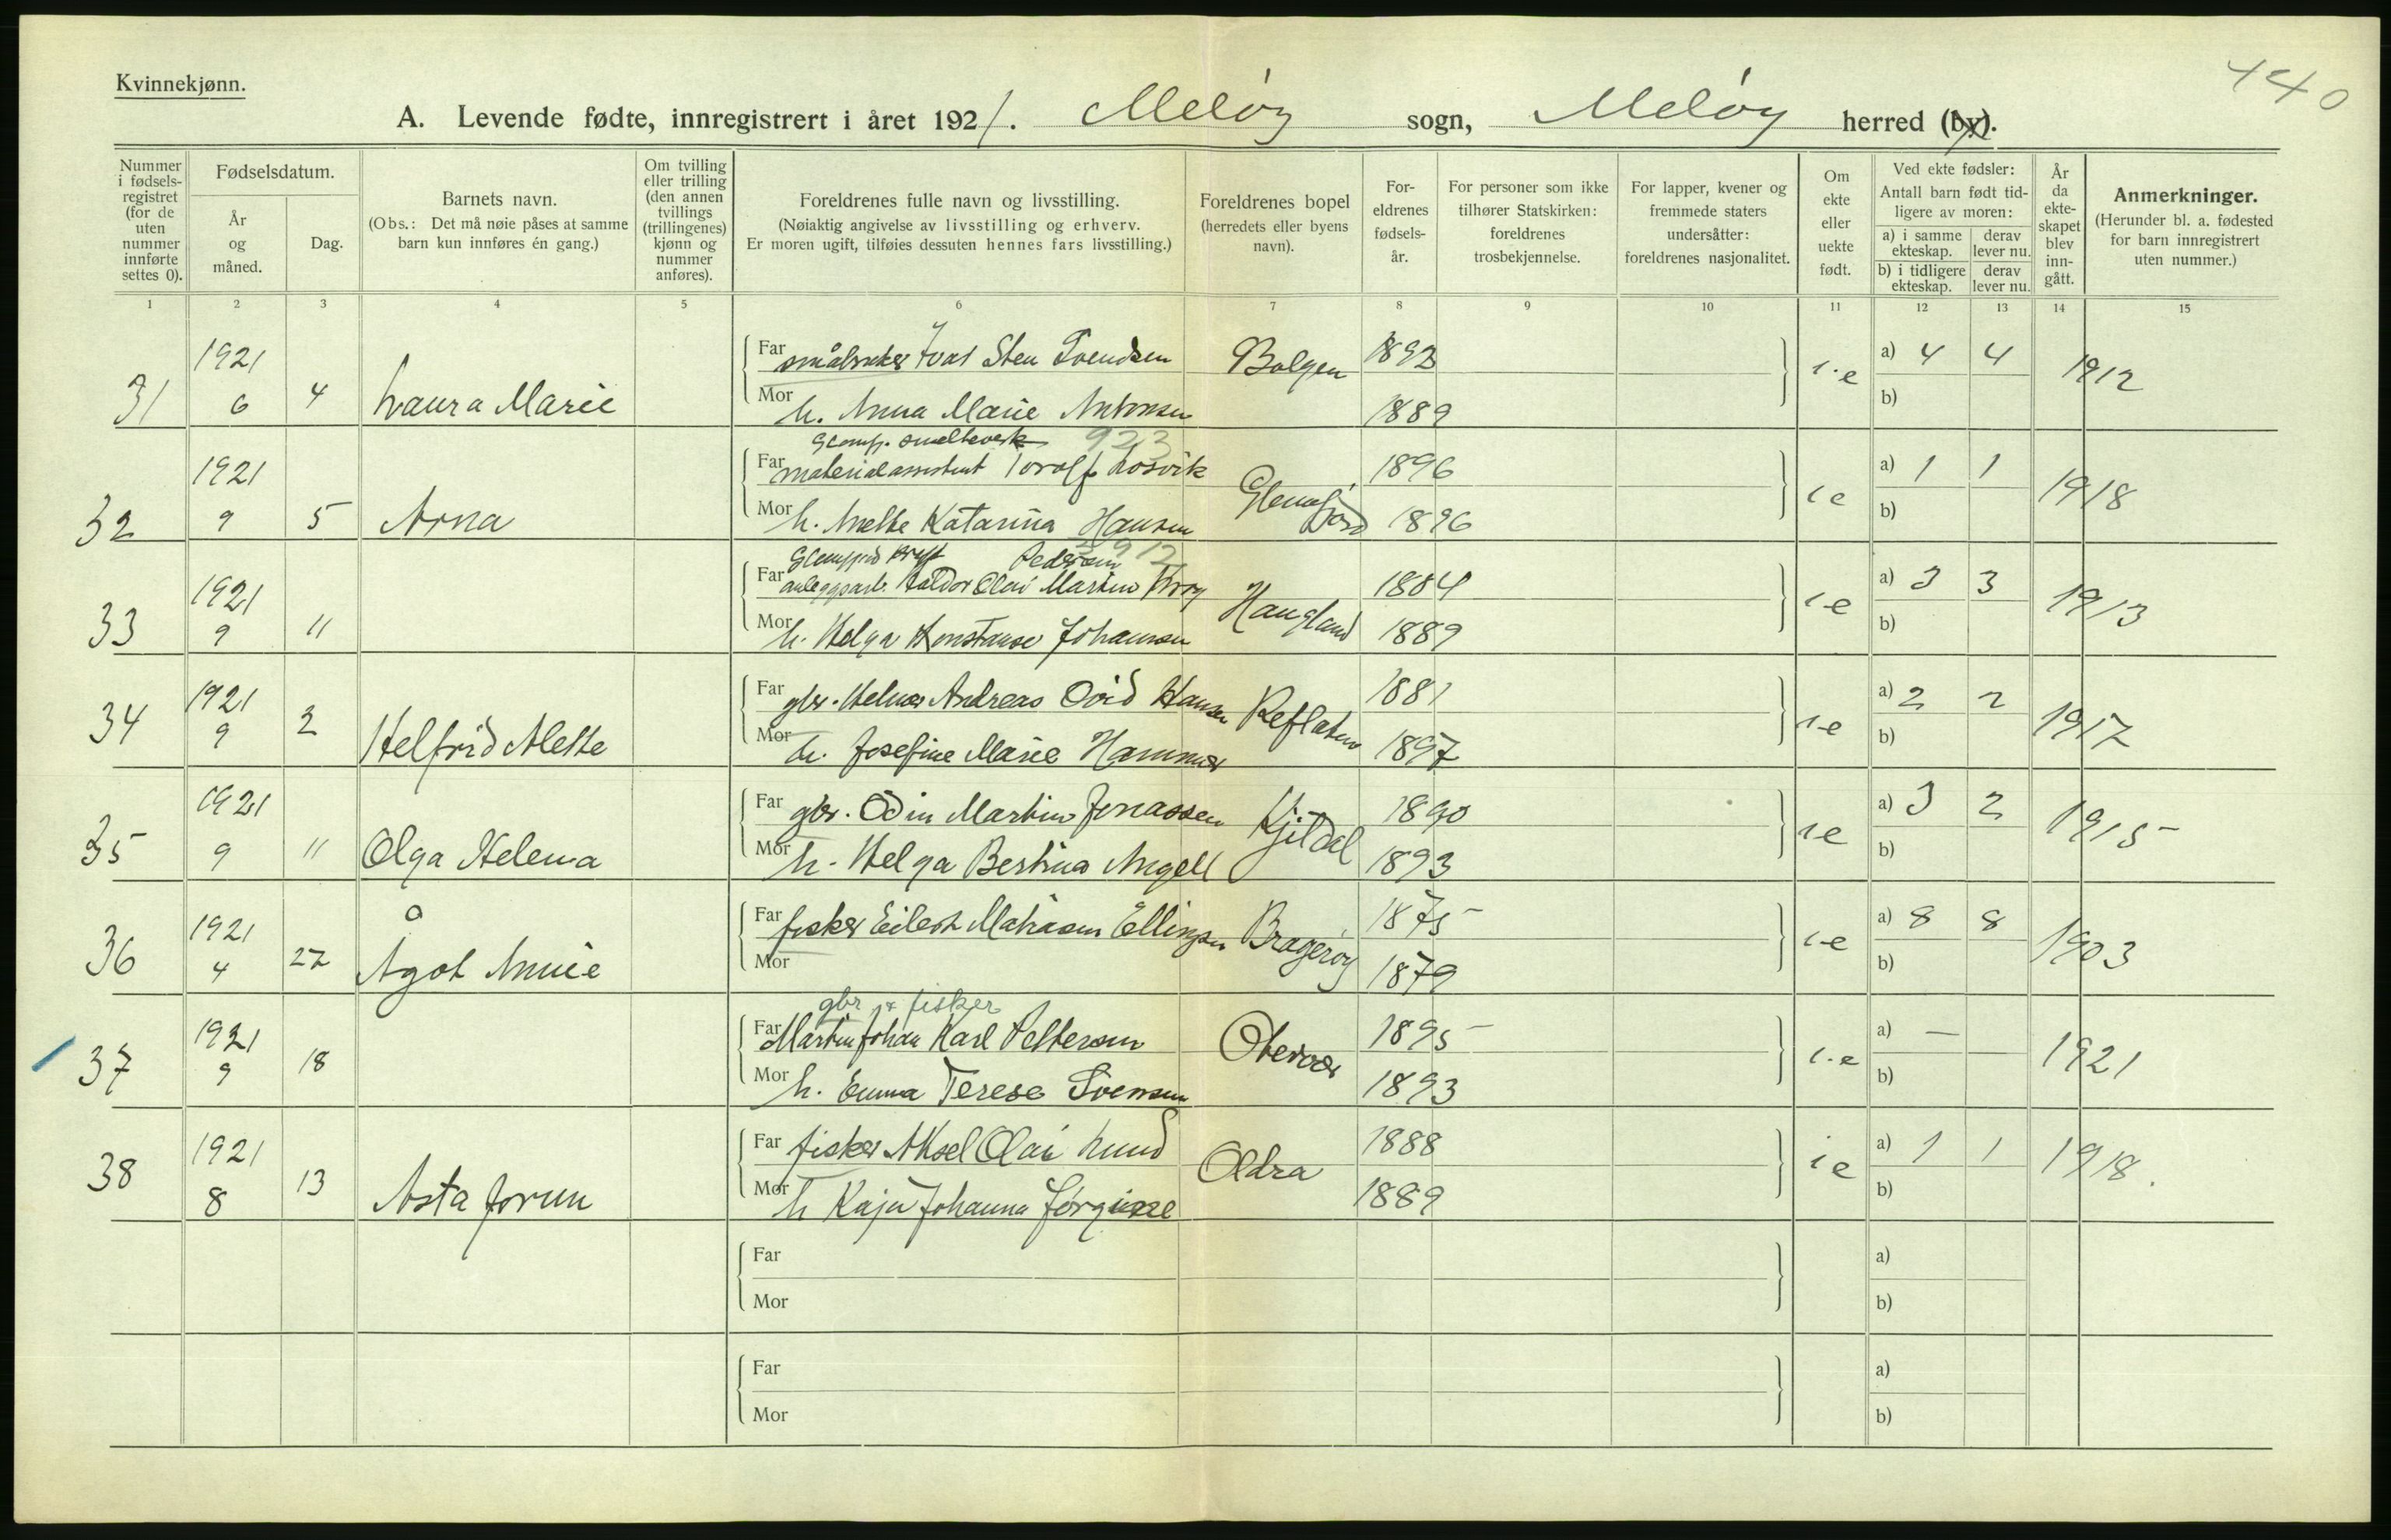 440
Kvinnekjønn.
A. Levende fødte, innregistrert i året 1921. Meløy sogn, Meløy herred (by).
Nummer i fødsels-registret (for de uten nummer innførte settes 0).
Fødselsdatum.
År og måned.
Dag.
Barnets navn.
(Obs.: Det må nøie påses at samme barn kun innføres én gang.)
Om tvilling eller trilling (den annen tvillings (trillingenes) kjønn og nummer anføres).
Foreldrenes fulle navn og livsstilling.
(Nøiaktig angivelse av livsstilling og erhverv.
Er moren ugift, tilføies dessuten hennes fars livsstilling.)
Foreldrenes bopel
(herredets eller byens navn).
For-eldrenes fødsels-år.
For personer som ikke tilhører Statskirken: foreldrenes trosbekjennelse.
For lapper, kvener og fremmede staters undersåtter: foreldrenes nasjonalitet.
Om ekte eller uekte født.
Ved ekte fødsler:
Antall barn født tid-ligere av moren:
a) i samme ekteskap.
derav lever nu.
b) i tidligere ekteskap.
derav lever nu.
År da ekte-skapet blev inn-gått.
Anmerkninger.
(Herunder bl. a. fødested for barn innregistrert uten nummer.)
1 2 3 4 5 6 7 8 9 10 11 12 13 14 15
31 1921 6 4 Laura Marie
Far småbruker Ivar Sten Svendsen Bolgen 1893 a) 4 4 1912
Mor h. Anna Marie Antonsen 1889 b)
Glomfj. smelteverk 923
32 1921 9 5 Arna
Far materialassistent Torolf Losvik Glomfjord 1896 a) 1 1 1918
Mor h. Mette Katarina Hansen 1896 b)
Pedersen
33 1921 9 11
Far anleggsarb. Haldor Olai Martin Haugland 1884 a) 3 3 1913
Mor h. Helga Konstanse Johansen 1889 b)
34 1921 9 2 Helfrid Mette
Far gbr. Helmer Andreas Hansen Reflaten 1881 a) 2 2 1917
Mor h. Josefine Marie Hammer 1897 b)
35 1921 9 11 Olga Helena
Far gbr. Odin Martin Jonassen Kjildal 1890 a) 3 2 1915
Mor h. Helga Bertina Angell 1893 b)
36 1921 4 22 Ågot Annie
Far fisker Eilert Matiasen Ellingsen 1875 a) 8 8 1903
Mor 1879 b)
gbr & fisker
37 1921 9 18
Far Martin Johan Karl Pettersen Otervær 1895 a) — 1921
Mor h. Emma Terese Svensen 1893 b)
38 1921 8 13 Asta Jorun
Far fisker Aksel Olai Lund Aldra 1888 a) 1 1 1918.
Mor h Kaja Johanna 1889 b)
Far a)
Mor b)
Far a)
Mor b)